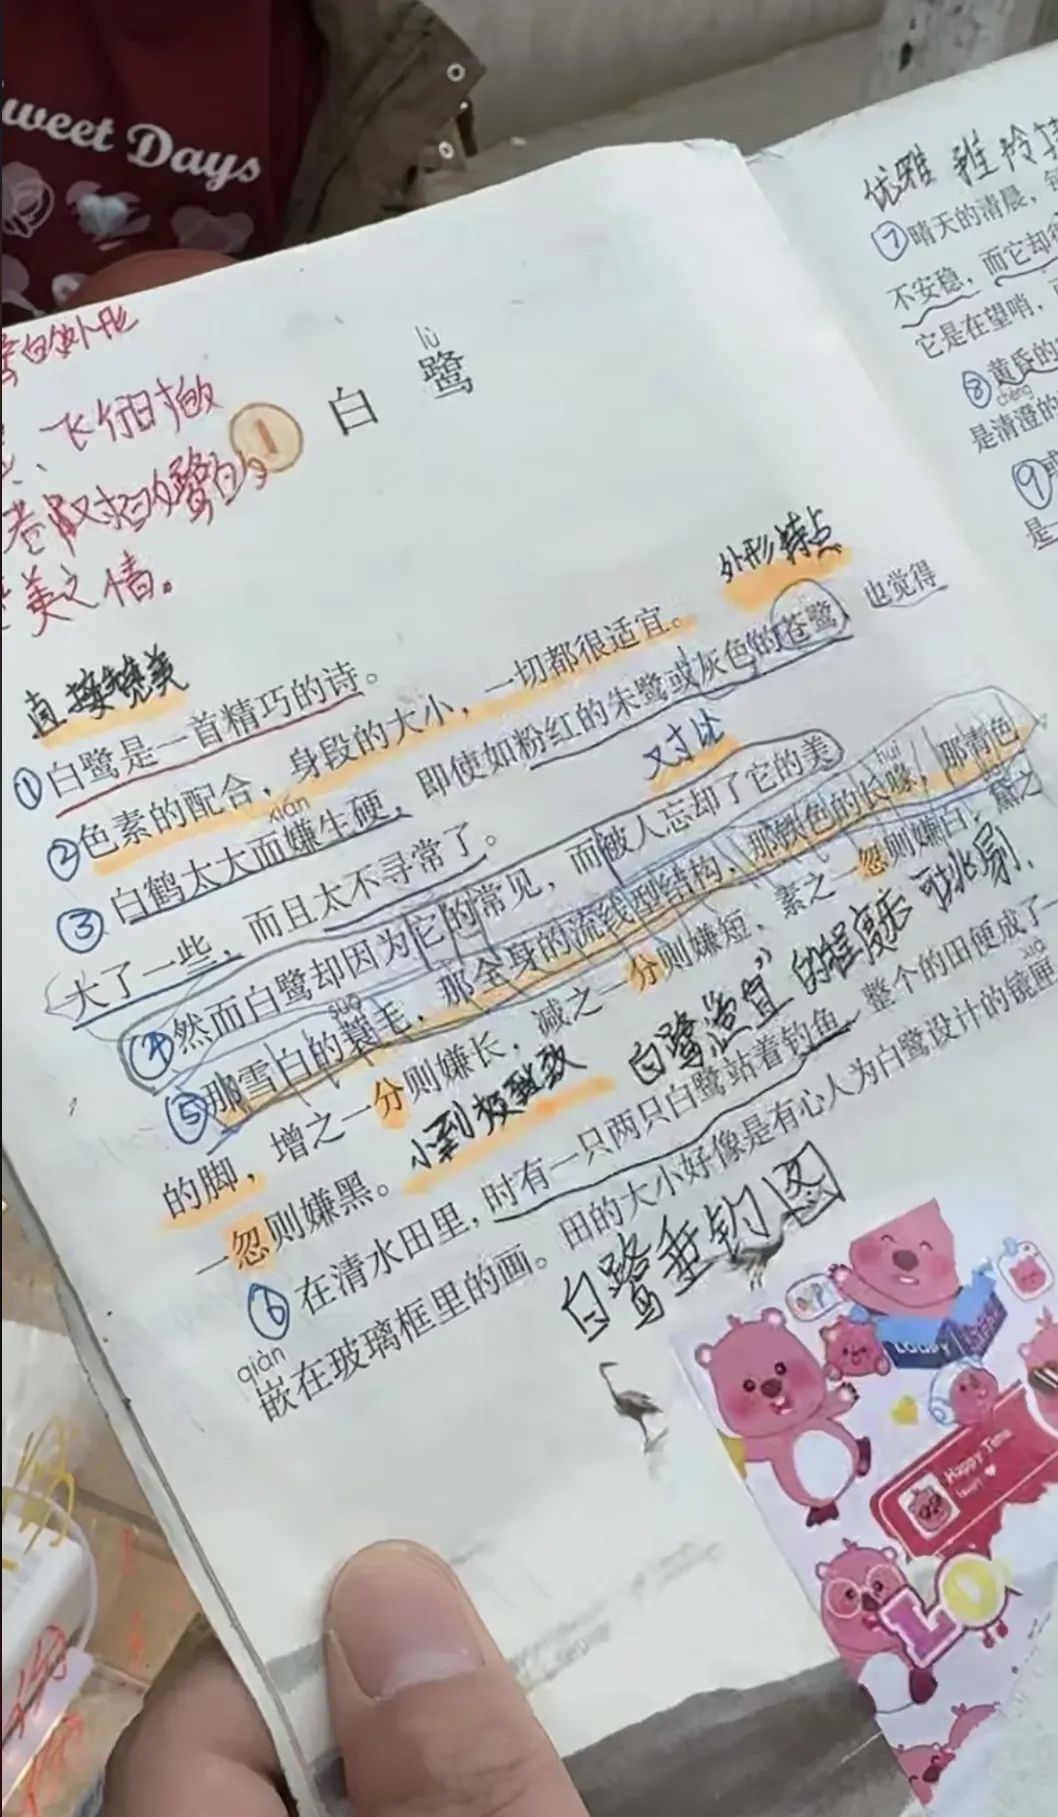 Sweet Days
飞行时
美之情。
1
lù
白 鹭
外形特点
直接赞美
①白鹭是一首精巧的诗。
②色素的配合，身段的大小，一切都很适宜。
xián
③白鹤太大而嫌生硬，即使如粉红的朱鹭或灰色的苍鹭，也觉得
大了一些，而且太不寻常了。
对比
④然而白鹭却因为它的常见，而被人忘却了它的美。
suō
huì
⑤那雪白的蓑毛，那全身的流线型结构，那铁色的长喙，那青色
的脚，增之一分则嫌长，减之一分则嫌短，素之一忽则嫌白，黛之
一忽则嫌黑。
小到极致
白鹭适宜的程度
⑥在清水田里，时有一只两只白鹭站着钓鱼，整个的田便成了一
qiàn
xiá
嵌在玻璃框里的画。田的大小好像是有心人为白鹭设计的镜匣
白鹭垂钓图
Loopy
Happy Time
LO
优雅
⑦晴天的清晨，
不安稳，而它却
它是在望哨，
⑧黄昏的
chéng
是清澄的
⑨
是